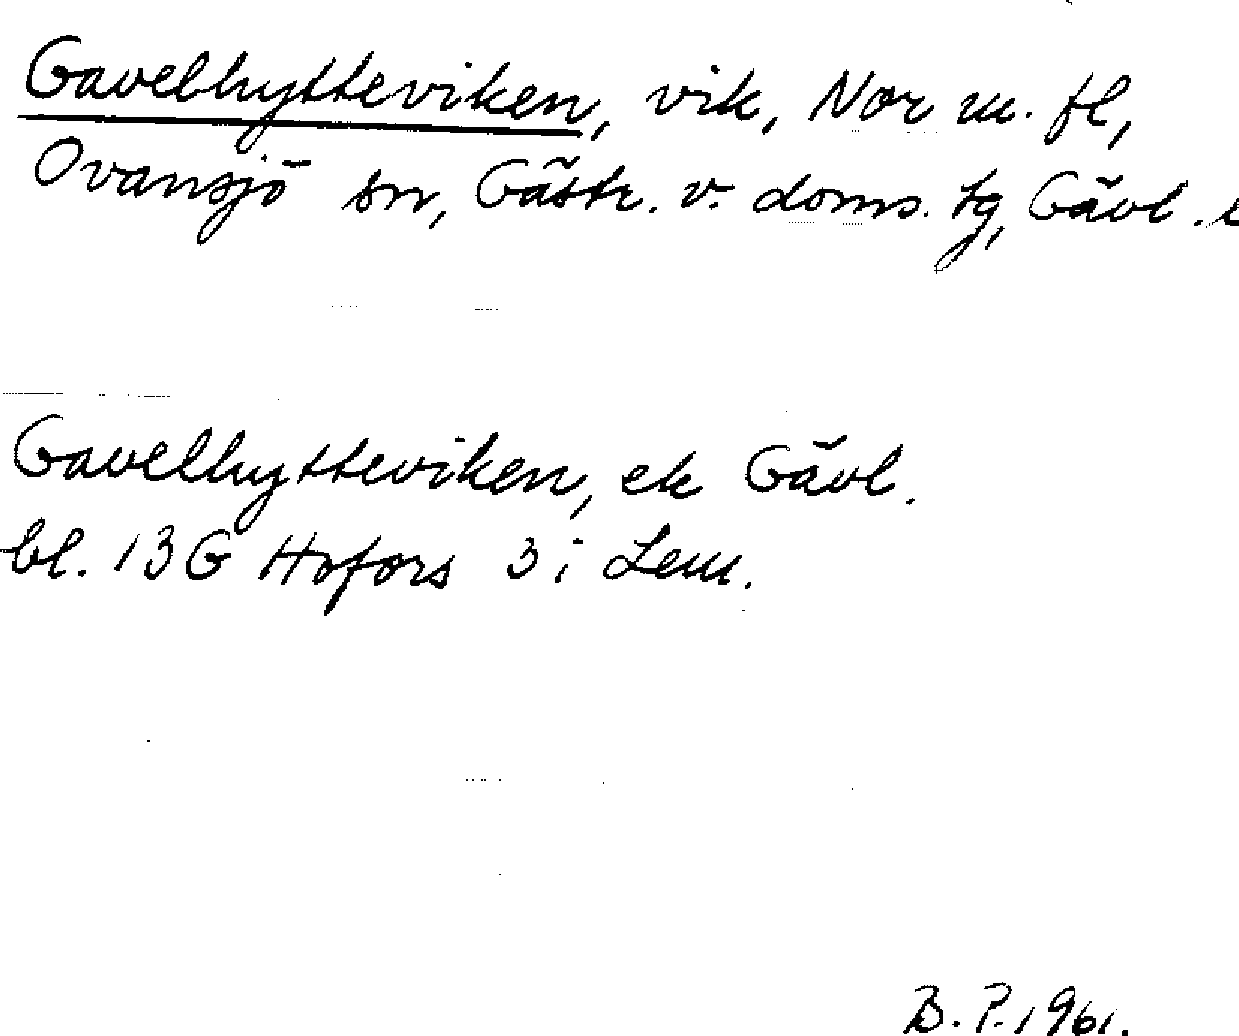 Gavelhytteviken, vik, Nor m. fl,
Ovansjö sn, Gästr. v. doms. tg, Gävl. l
Gavelhytteviken, ek Gävl.
bl. 13G Hofors 3 i Lem.
B. P. 1961.